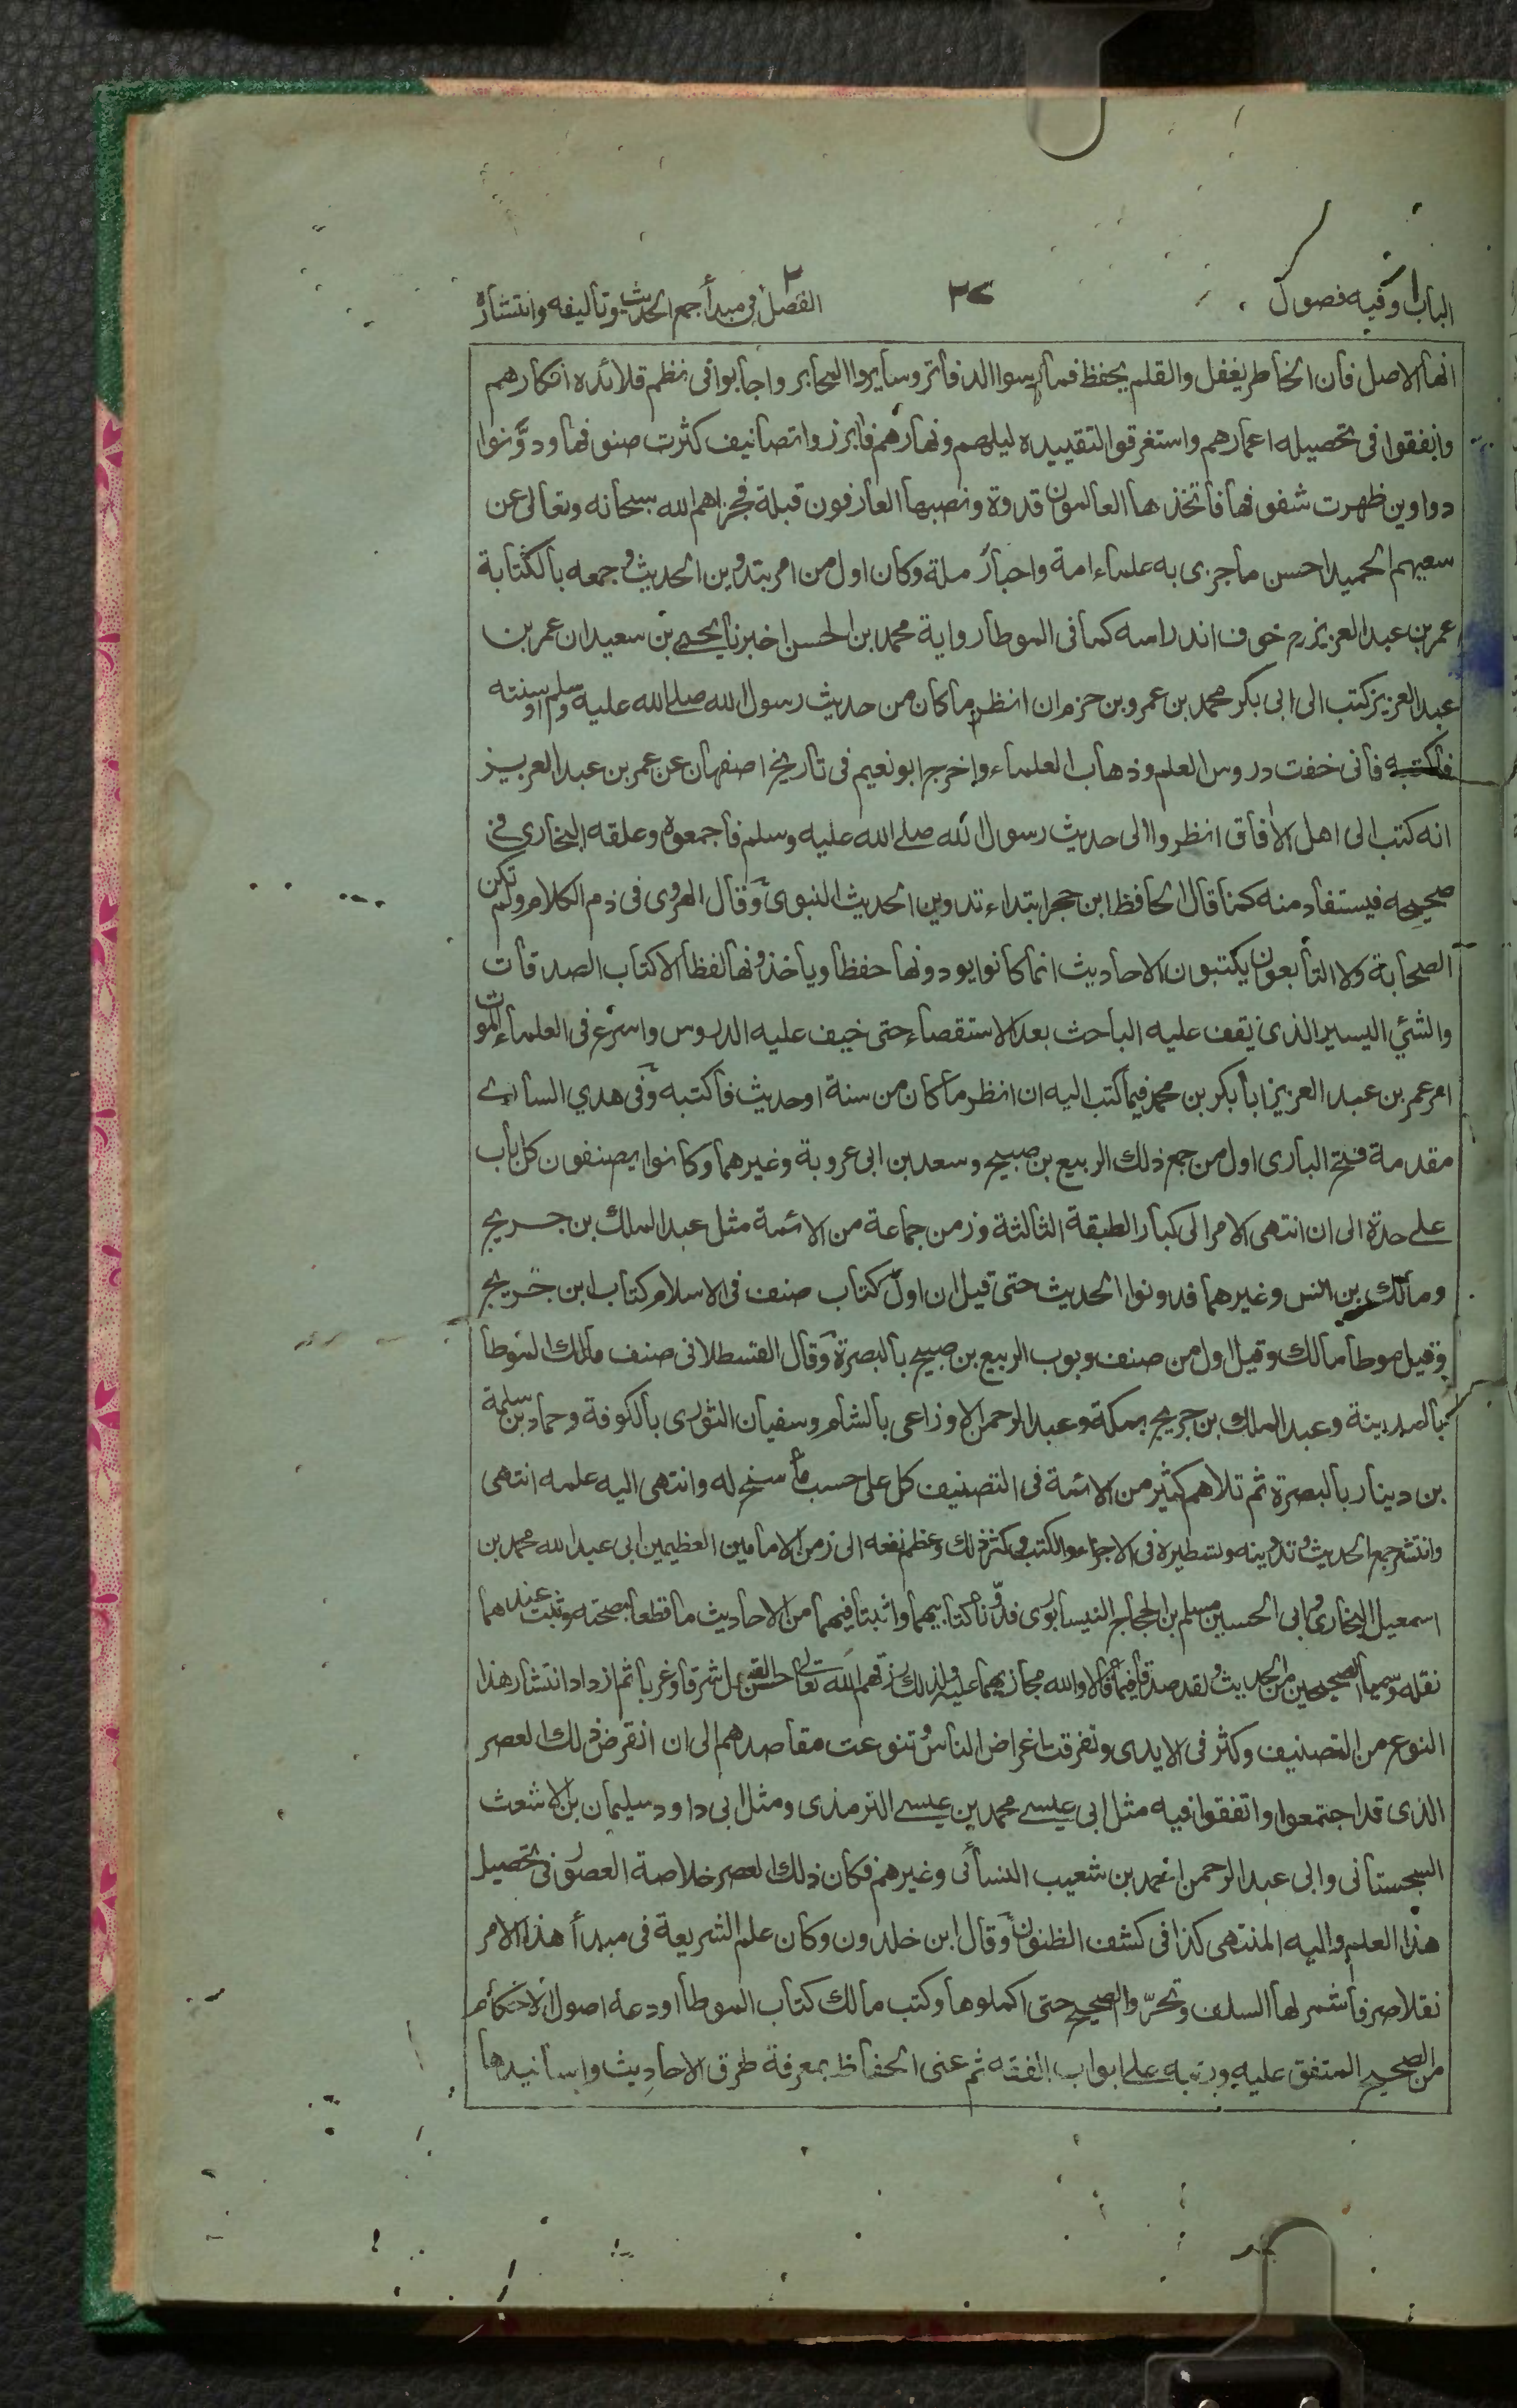 الباب ١ وفيه فصول
٢٧
الفصل ٢ في مبدأ جمع الحديث وتأليفه وانتشاره
انها الاصل فان الخاطر يغفل والقلم يحفظ فمارسوا الدفاتر وسايروا المحابر واجابوا فى نظم قلائده افكارهم
وانفقوا فى تحصيله اعمارهم واستغرقوا لتقييده ليلهم ونهارهم فابرزوا تصانيف كثرت صنوفها ودوّنوا
دواوين ظهرت شفوفها فاتخذها العالمون قدوة ونصبها العارفون قبلة فجزاهم الله سبحانه وتعالى عن
سعيهم الحميد احسن ما جزى به علماء امة واحبار ملة وكان اول من امر بتدوين الحديث وجمعه بالكتابة
عمر بن عبد العزيز رح خوف اندراسه كما فى الموطا رواية محمد بن الحسن اخبرنا يحيى بن سعيد ان عمر بن
عبد العزيز كتب الى ابى بكر محمد بن عمرو بن حزم ان انظر ما كان من حديث رسول الله صلى الله عليه وسلم او سنته
فاكتبه فانى خفت دروس العلم وذهاب العلماء واخرج ابو نعيم فى تاريخ اصفهان عن عمر بن عبد العزيز
انه كتب الى اهل الآفاق انظروا الى حديث رسول الله صلى الله عليه وسلم فاجمعوه وعلقه البخاري في
صحيحه فيستفاد منه كما قال الحافظ ابن حجر ابتداء تدوين الحديث النبوى وقال الهروى فى ذم الكلام ولم تكن
الصحابة ولا التابعون يكتبون الاحاديث انما كانوا يودونها حفظا وياخذونها لفظا الا كتاب الصدقات
والشئي اليسير الذى يقف عليه الباحث بعد الاستقصاء حتى خيف عليه الدروس واسرع فى العلماء الموت
امر عمر بن عبد العزيز ابا بكر بن محمد فيما كتب اليه ان انظر ما كان من سنة او حديث فاكتبه وفى هدي الساري
مقدمة فتح البارى اول من جمع ذلك الربيع بن صبيح وسعد بن ابى عروبة وغيرهما وكانوا يصنفون كل باب
على حدة الى ان انتهى الامر الى كبار الطبقة الثالثة وزمن جماعة من الائمة مثل عبد الملك بن جريج
ومالك بن انس وغيرهما فدونوا الحديث حتى قيل ان اول كتاب صنف فى الاسلام كتاب ابن جريج
وقيل موطا مالك وقيل اول من صنف وبوب الربيع بن صبيح بالبصرة وقال القسطلانى صنف مالك الموطا
بالمدينة وعبد الملك بن جريج بمكة وعبد الرحمن الاوزاعى بالشام وسفيان الثورى بالكوفة وحماد بن سلمة
بن دينار بالبصرة ثم تلاهم كثير من الائمة فى التصنيف كل على حسب ما سنح له وانتهى اليه علمه انتهى
وانتشر جمع الحديث وتدوينه وتسطيره فى الاجزاء والكتب وكثر ذلك وعظم نفعه الى زمن الامامين العظيمين ابى عبد الله محمد بن
اسمعيل البخارى وابى الحسين مسلم بن الحجاج النيسابورى فدوّنا كتابيهما واثبتا فيهما من الاحاديث ما قطعا بصحته وثبت عندهما
نقله وسميا الصحيحين من الحديث ولقد صدقا فيما قالا والله مجازيهما عليه ولذلك رزقهما الله تعالى حسن القبول شرقا وغربا ثم ازداد انتشار هذا
النوع من التصنيف وكثر فى الايدى وتفرقت اغراض الناس وتنوعت مقاصدهم الى ان انقرض ذلك العصر
الذى قد اجتمعوا واتفقوا فيه مثل ابى عيسى محمد بن عيسى الترمذى ومثل ابى داود سليمان بن الاشعث
السجستانى وابى عبد الرحمن احمد بن شعيب النسائى وغيرهم فكان ذلك العصر خلاصة العصور فى تحصيل
هذا العلم واليه المنتهى كذا فى كشف الظنون وقال ابن خلدون وكان علم الشريعة فى مبدأ هذا الامر
نقلا صرفا شمر لها السلف وتحرّوا الصحيح حتى اكملوها وكتب مالك كتاب الموطا اودعه اصول الاحكام
من الصحيح المتفق عليه ورتبه على ابواب الفقه ثم عنى الحفاظ بمعرفة طرق الاحاديث واسانيدها